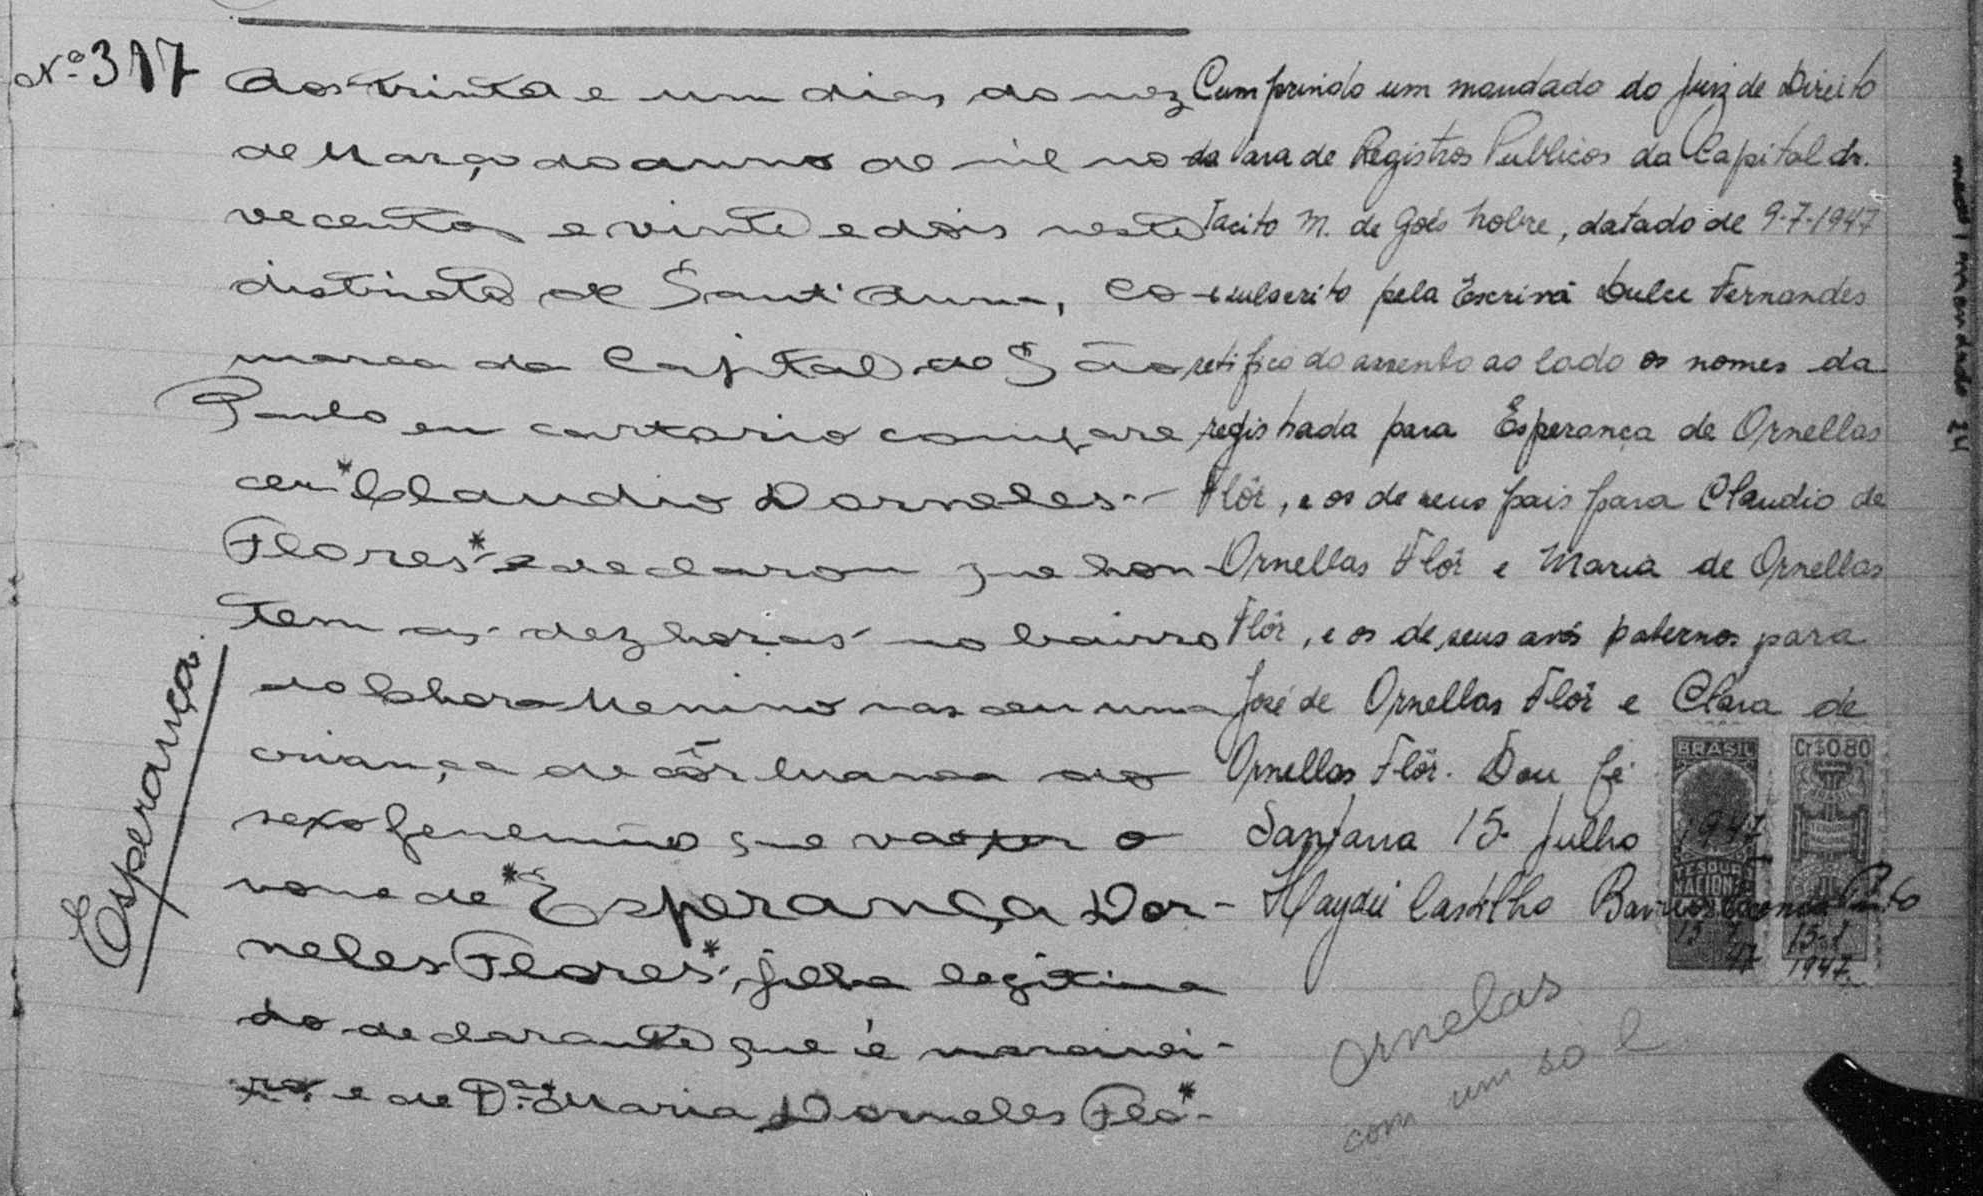 Nº 317
Aos trinta e um dias do mez
de Março do anno de mil no
vecentos e vinte e dois neste
districto de Sant'Anna, Co-
marca da Capital de São
Paulo em cartorio compare
ceu *Claudio Dorneles -
Flores* e declarou que hon
tem as dez horas no bairro
do Chora Menino nasceu uma
criança de côr branca do
sexo femenino que o
nome de *Esperança Dor-
neles Flores*, filha legitima
do declarante que é marcinei-
ro e de Dª *Maria Dorneles Flo*-
Esperança.
Cumprindo um mandado do Juiz de Direito
da Vara de Registros Publicos da Capital dr.
Tacito M. de Goés Nobre, datado de 9-7-1947
e subscrito pela Escrivã Dulce Fernandes
retifico do assento ao lado os nomes da
registrada para Esperança de Ornellas
Flôr, e os de seus pais para Claudio de
Ornellas Flôr e Maria de Ornellas
Flôr, e os de seus avós paternos para
José de Ornellas Flôr e Clara de
Ornellas Flôr. Dou fé
Santana 15 Julho 1947
Haydée Castilho Pinto
BRASIL
TESOURO
NACIONAL
Cr$0,80
1947
Ornelas
com um so l